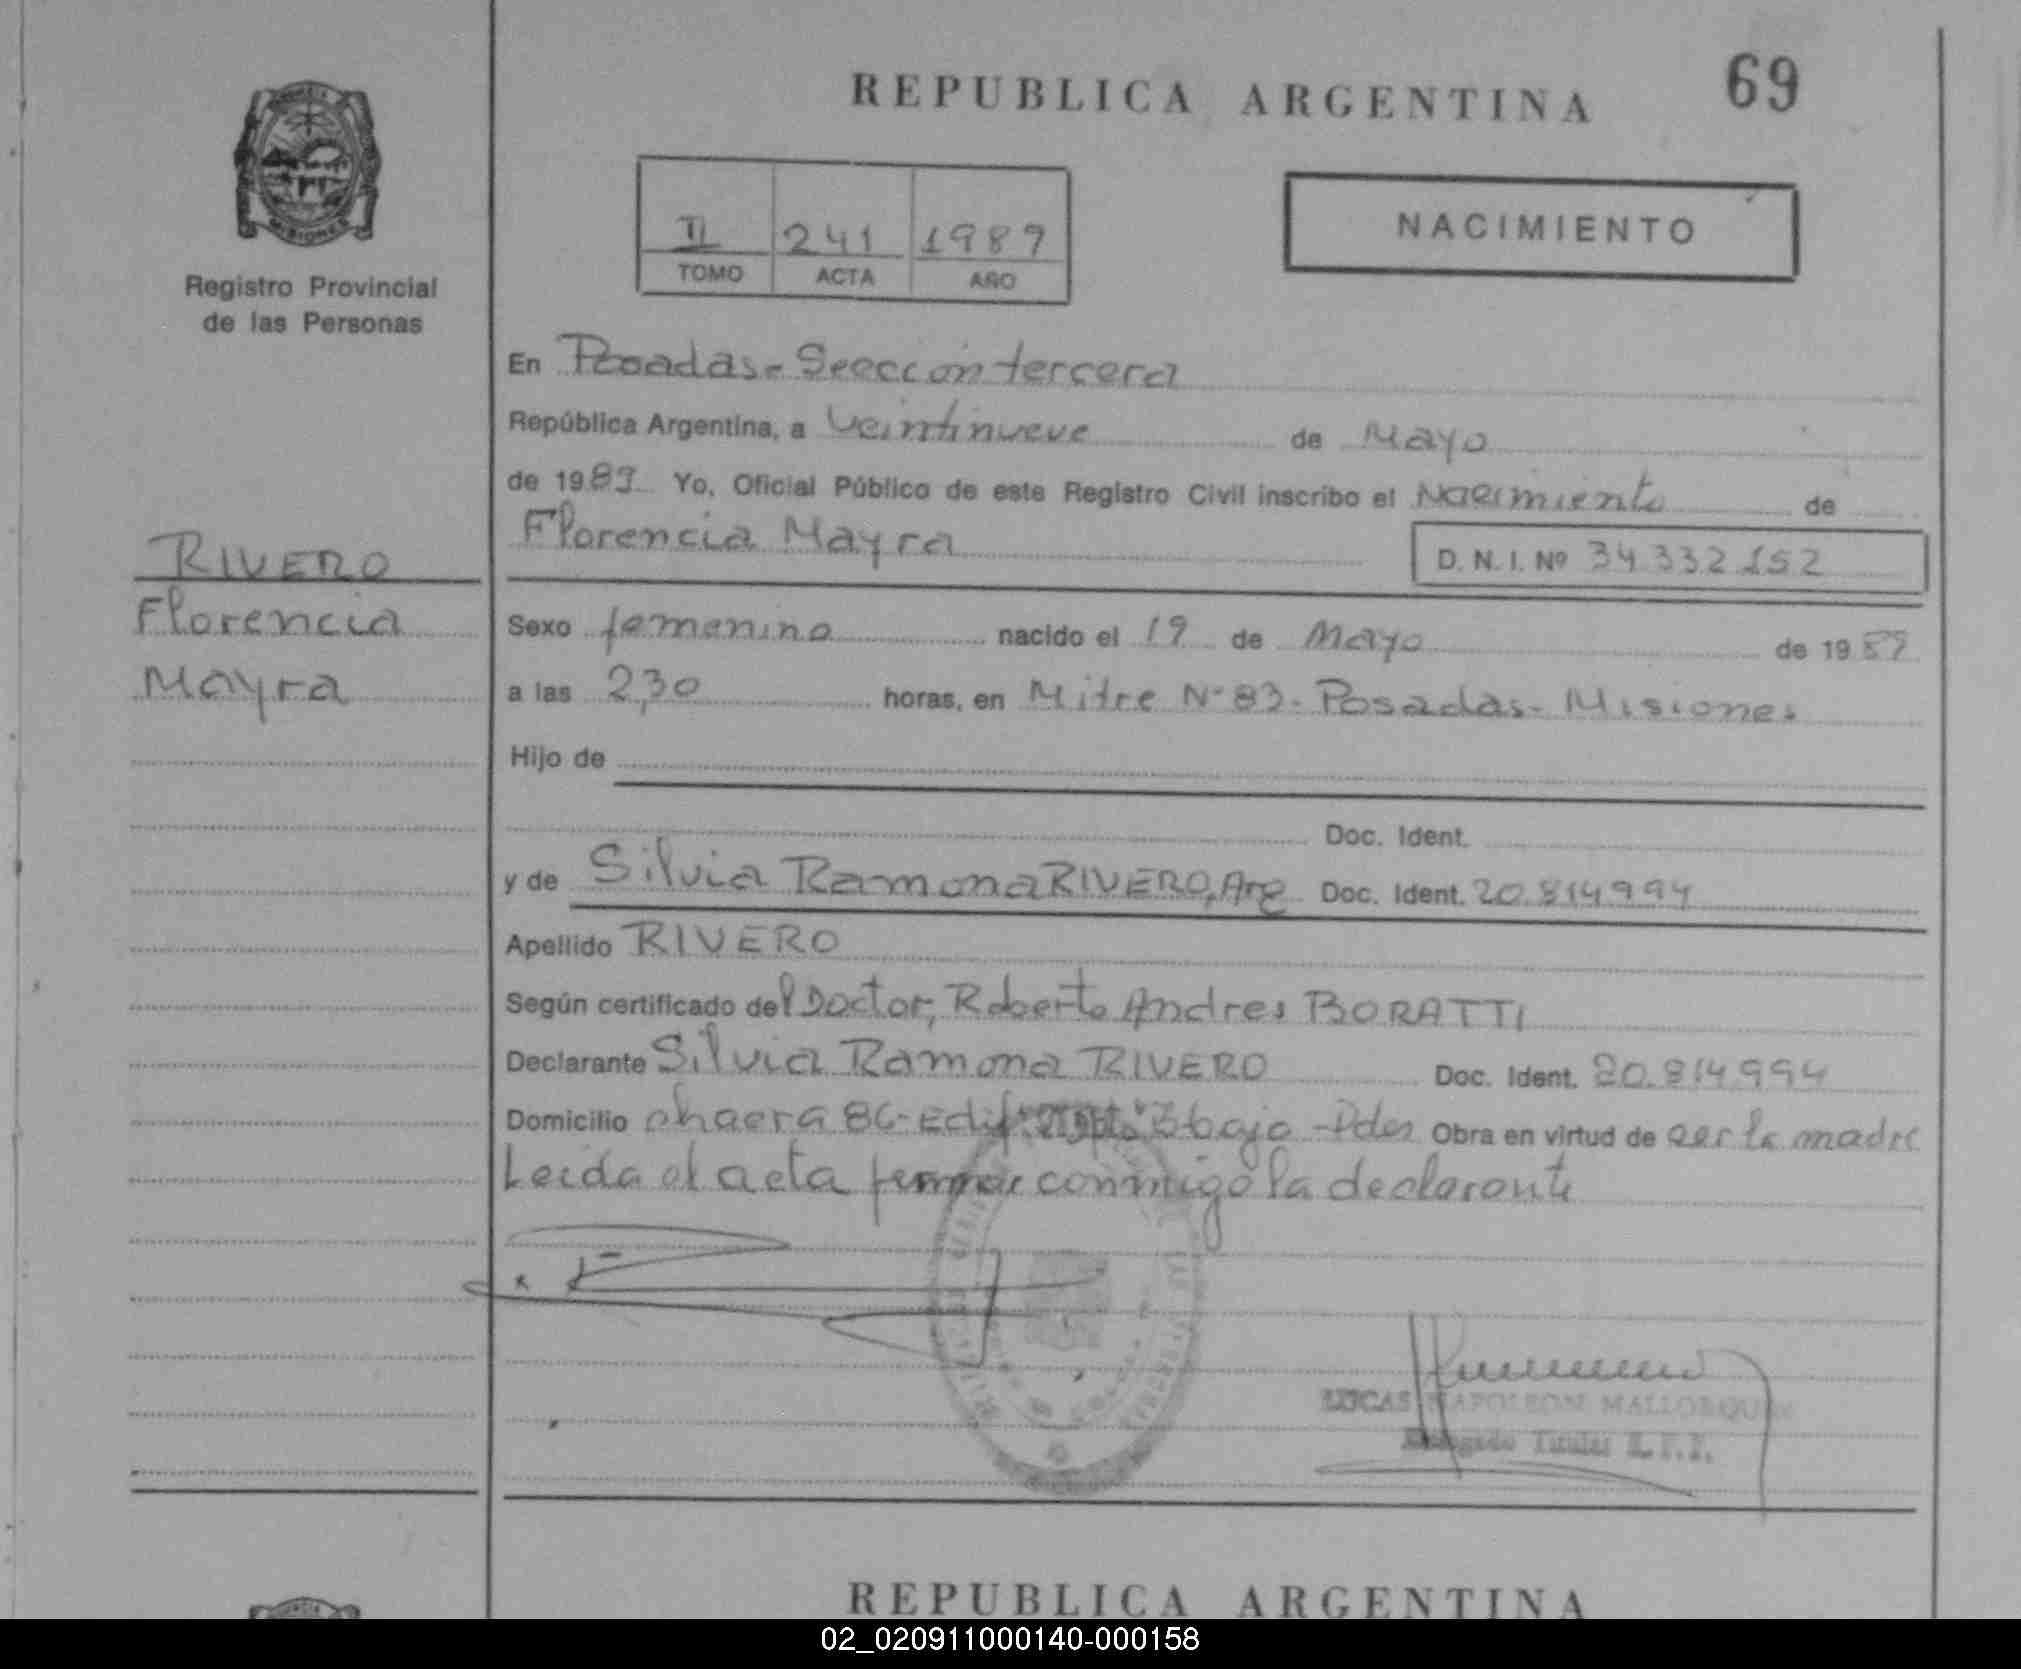 REPUBLICA ARGENTINA
69
II 241 1989
TOMO ACTA AÑO
NACIMIENTO
Registro Provincial
de las Personas
En Posadas - Seccion tercera
República Argentina, a veintinueve de Mayo
de 1989 Yo, Oficial Público de este Registro Civil inscribo el Nacimiento de
Florencia Mayra
D. N. I. Nº 34.332.152
RIVERO
Florencia
Mayra
Sexo femenino nacido el 19 de Mayo de 1989
a las 2,30 horas, en Mitre Nº 83 - Posadas - Misiones
Hijo de
Doc. Ident.
y de Silvia Ramona RIVERO, Arg Doc. Ident. 20.814.994
Apellido RIVERO
Según certificado del Doctor, Roberto Andres BORATTI
Declarante Silvia Ramona RIVERO Doc. Ident. 20.814.994
Domicilio chacra 86 - Edif. bajo - Pdas Obra en virtud de ser la madre
Leida el acta firma conmigo la declarante
LUCAS NAPOLEON MALLORQUIN
Delegado Titular R.P.P.
REPUBLICA ARGENTINA
02_020911000140-000158